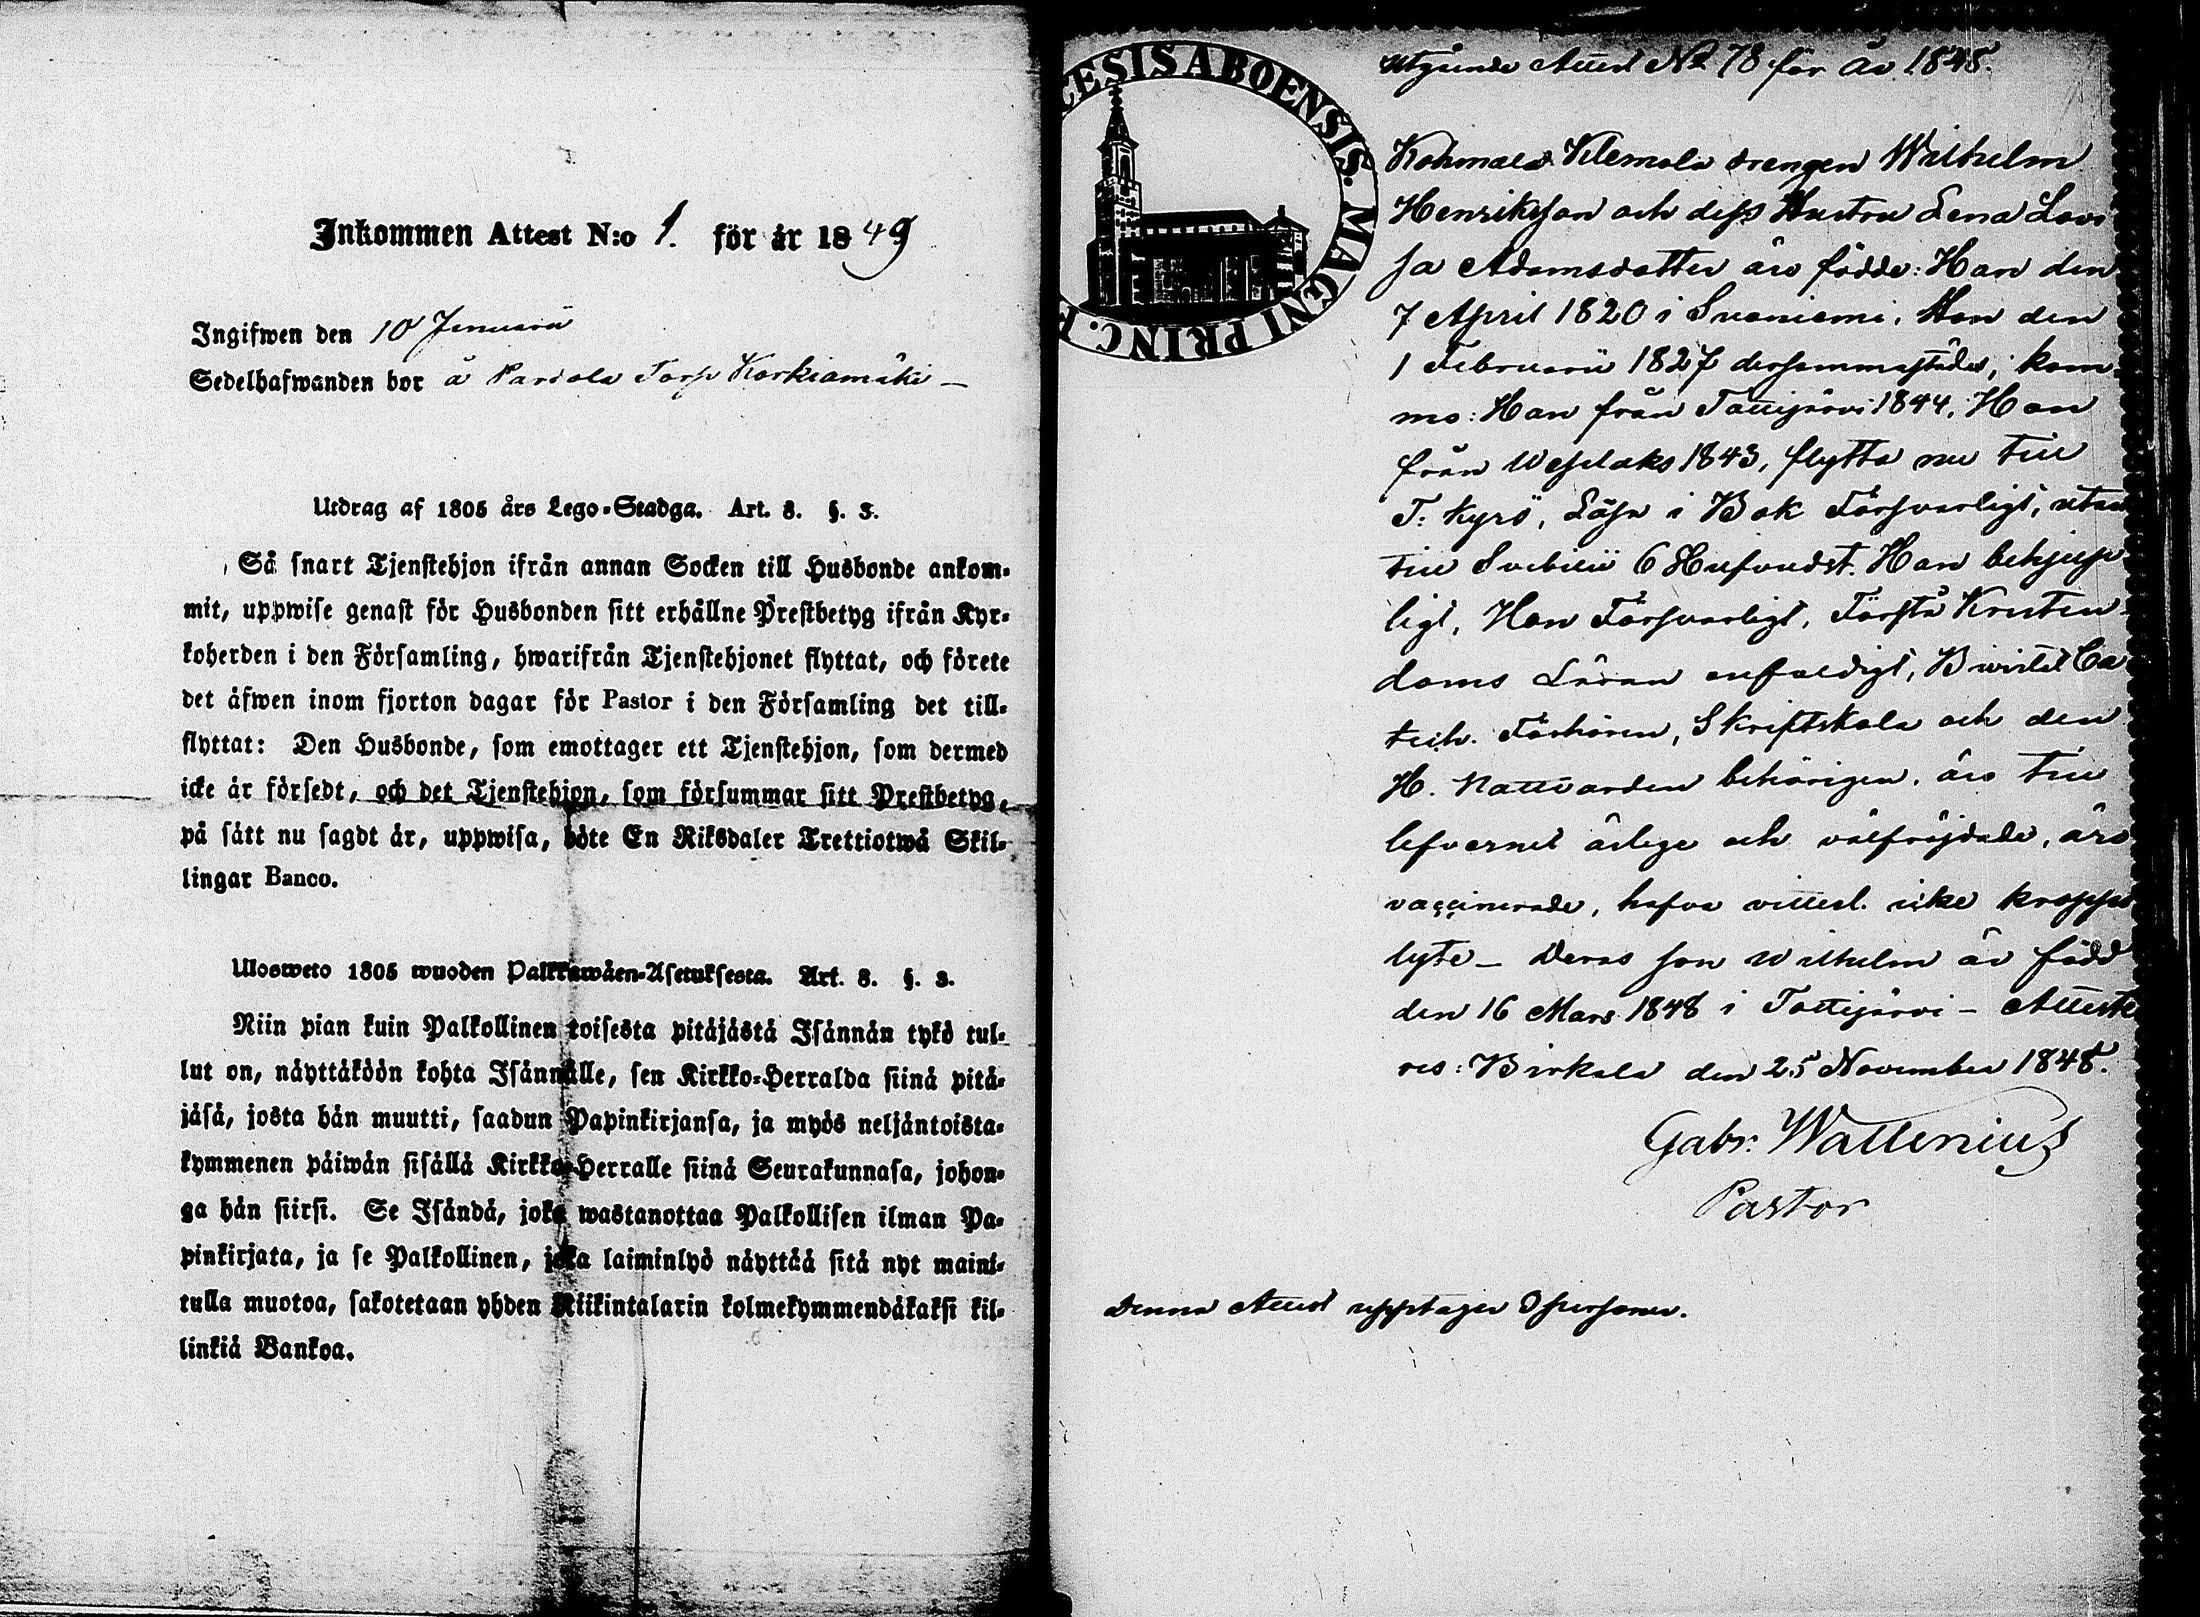 Inkommen Attest N:o 1. för år 1849
Ingifwen den 10 Januarii
Sedelhafwanden bor å Pardola Torp Korkiamäki –
Utdrag af 1805 års Lego-Stadga. Art. 8. §. 3.
Så snart Tjenstehjon ifrån annan Socken till Husbonde ankom-
mit, uppwise genast för Husbonden sitt erhållne Prestbetyg ifrån Kyr-
koherden i den Församling, hwarifrån Tjenstehjonet flyttat, och förete
det äfwen inom fjorton dagar för Pastor i den Församling det till-
flyttat: Den Husbonde, som emottager ett Tjenstehjon, som dermed
icke är försedt, och det Tjenstehjon, som försummar sitt Prestbetyg,
på sätt nu sagdt är, uppwisa, böte En Riksdaler Trettiotwå Skil-
lingar Banco.
Ulosweto 1805 wuoden Palkkawäen-Asetuksesta. Art. 8. §. 3.
Niin pian kuin Palkollinen toisesta pitäjästä Isännän tykö tul-
lut on, näyttäköön kohta Isännälle, sen Kirkko-Herralda siinä pitä-
jäsä, josta hän muutti, saadun Papinkirjansa, ja myös neljäntoista-
kymmenen päiwän sisällä Kirkko-Herralle siinä Seurakunnasa, johon-
ga hän siirsi. Se Isändä, joka wastanottaa Palkollisen ilman Pa-
pinkirjata, ja se Palkollinen, joka laiminlyö näyttää sitä nyt maini-
tulla muotoa, sakotetaan yhden Riikintalarin kolmekymmendäkaksi kil-
linkiä Bankoa.
CESIS ABOENSIS. MAGNI PRINC. F
Utgående Attest No 78 för år 1848.
Kohmala Klemola drengen Wilhelm
Henriksson och dess Hustru Lena Lovi
sa Adamsdotter äro födde: Han den
7 April 1820 i Suoniemi, Hon den
1 Februarii 1827 dersammastädes; kom-
mo: Han från Tottijärvi 1844, Hon
från Wesilaks 1843, flytta nu till
T: Kyrö, Läsa i Bok Försvarligt, utan
till Svebilii 6 Hufvudst. Han behjelp
ligt, Hon Försvarligt, Förstå Kristen-
doms Läran enfaldigt, Bivistat Ca
tech. Förhören, Skriftskola och den
H. Nattvarden behörigen, äro till
lefvernet ärlige och välfrejdade, äro
vaccinerade, hafva vitterl. icke kropps
lyte – Deras son Wilhelm är född
den 16 Mars 1848 i Tottijärvi – Atteste
res: Birkala den 25 November 1848.
Gabr: Wallenius
Pastor
Denna Attest upptager 3 personer.